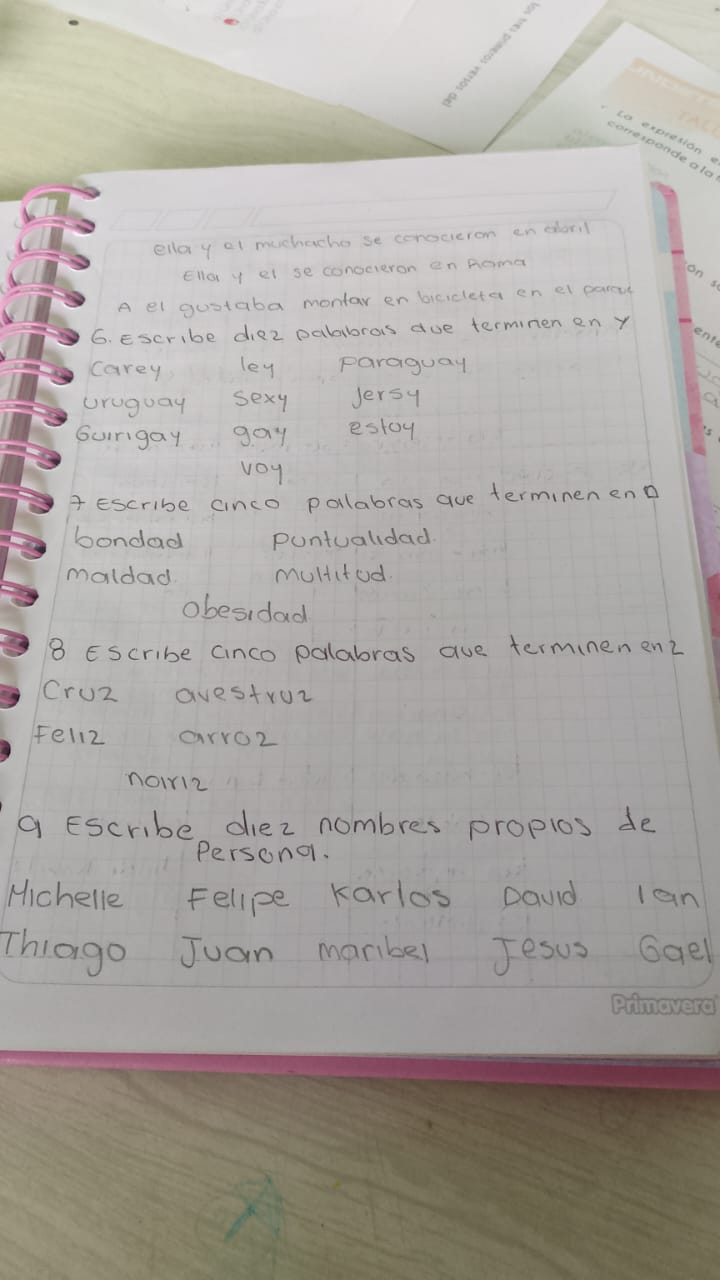 los tres primeros versos del
La expresión e
corresponde a la
ella y el muchacho se conocieron en abril
Ella y el se conocieron en Roma
A el gustaba montar en bicicleta en el parque
6. Escribe diez palabras que terminen en y
Carey ley paraguay
uruguay sexy Jersy
Guirigay gay estoy
voy
7 Escribe cinco palabras que terminen en D
bondad puntualidad.
maldad. multitud.
obesidad
8 Escribe cinco palabras que terminen en z
Cruz avestruz
Feliz arroz
nariz
9 Escribe diez nombres propios de
Persona.
Michelle Felipe Karlos David Ian
Thiago Juan maribel Jesus Gael
Primavera